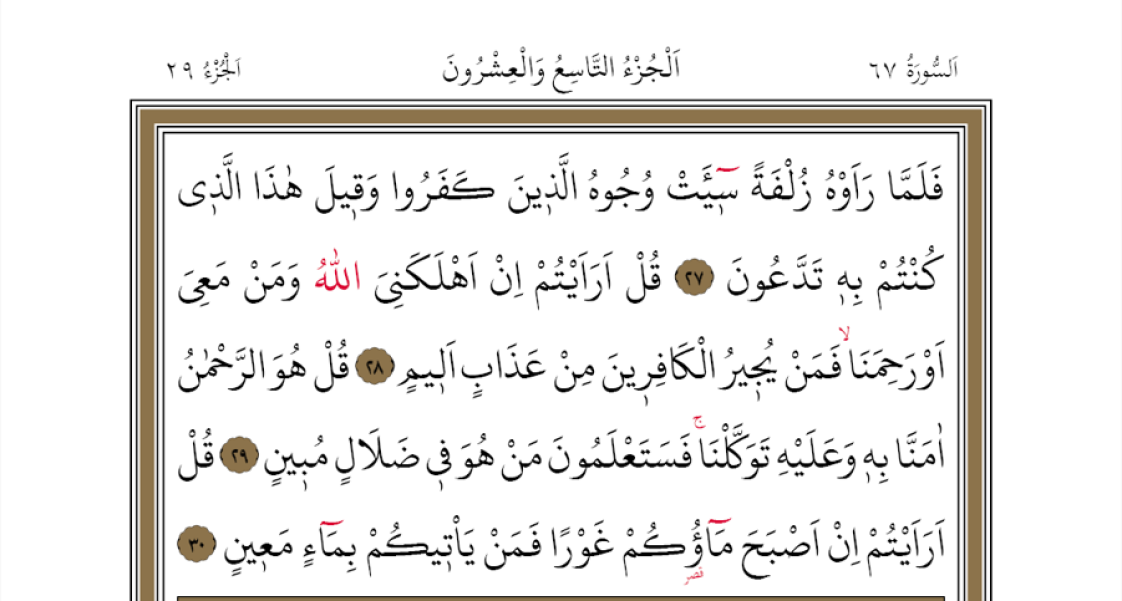 اَلسُّورَةُ ٦٧ اَلْجُزْءُ التَّاسِعُ وَالْعِشْرُونَ اَلْجُزْءُ ٢٩
فَلَمَّا رَاَوْهُ زُلْفَةً سٓيـَٔتْ وُجُوهُ الَّذ۪ينَ كَفَرُوا وَق۪يلَ هٰذَا الَّذ۪ى
كُنْتُمْ بِه۪ تَدَّعُونَ ﴿٢٧﴾ قُلْ اَرَاَيْتُمْ اِنْ اَهْلَكَنِىَ اللّٰهُ وَمَنْ مَعِىَ
اَوْرَحِمَنَاۙ فَمَنْ يُج۪يرُ الْكَافِر۪ينَ مِنْ عَذَابٍ اَل۪يمٍ ﴿٢٨﴾ قُلْ هُوَ الرَّحْمٰنُ
اٰمَنَّا بِه۪ وَعَلَيْهِ تَوَكَّلْنَاۚ فَسَتَعْلَمُونَ مَنْ هُوَ ف۪ى ضَلَالٍ مُب۪ينٍ ﴿٢٩﴾ قُلْ
اَرَاَيْتُمْ اِنْ اَصْبَحَ مَٓاؤُ۬كُمْ غَوْرًا فَمَنْ يَاْت۪يكُمْ بِمَٓاءٍ مَع۪ينٍ ﴿٣٠﴾
قصر